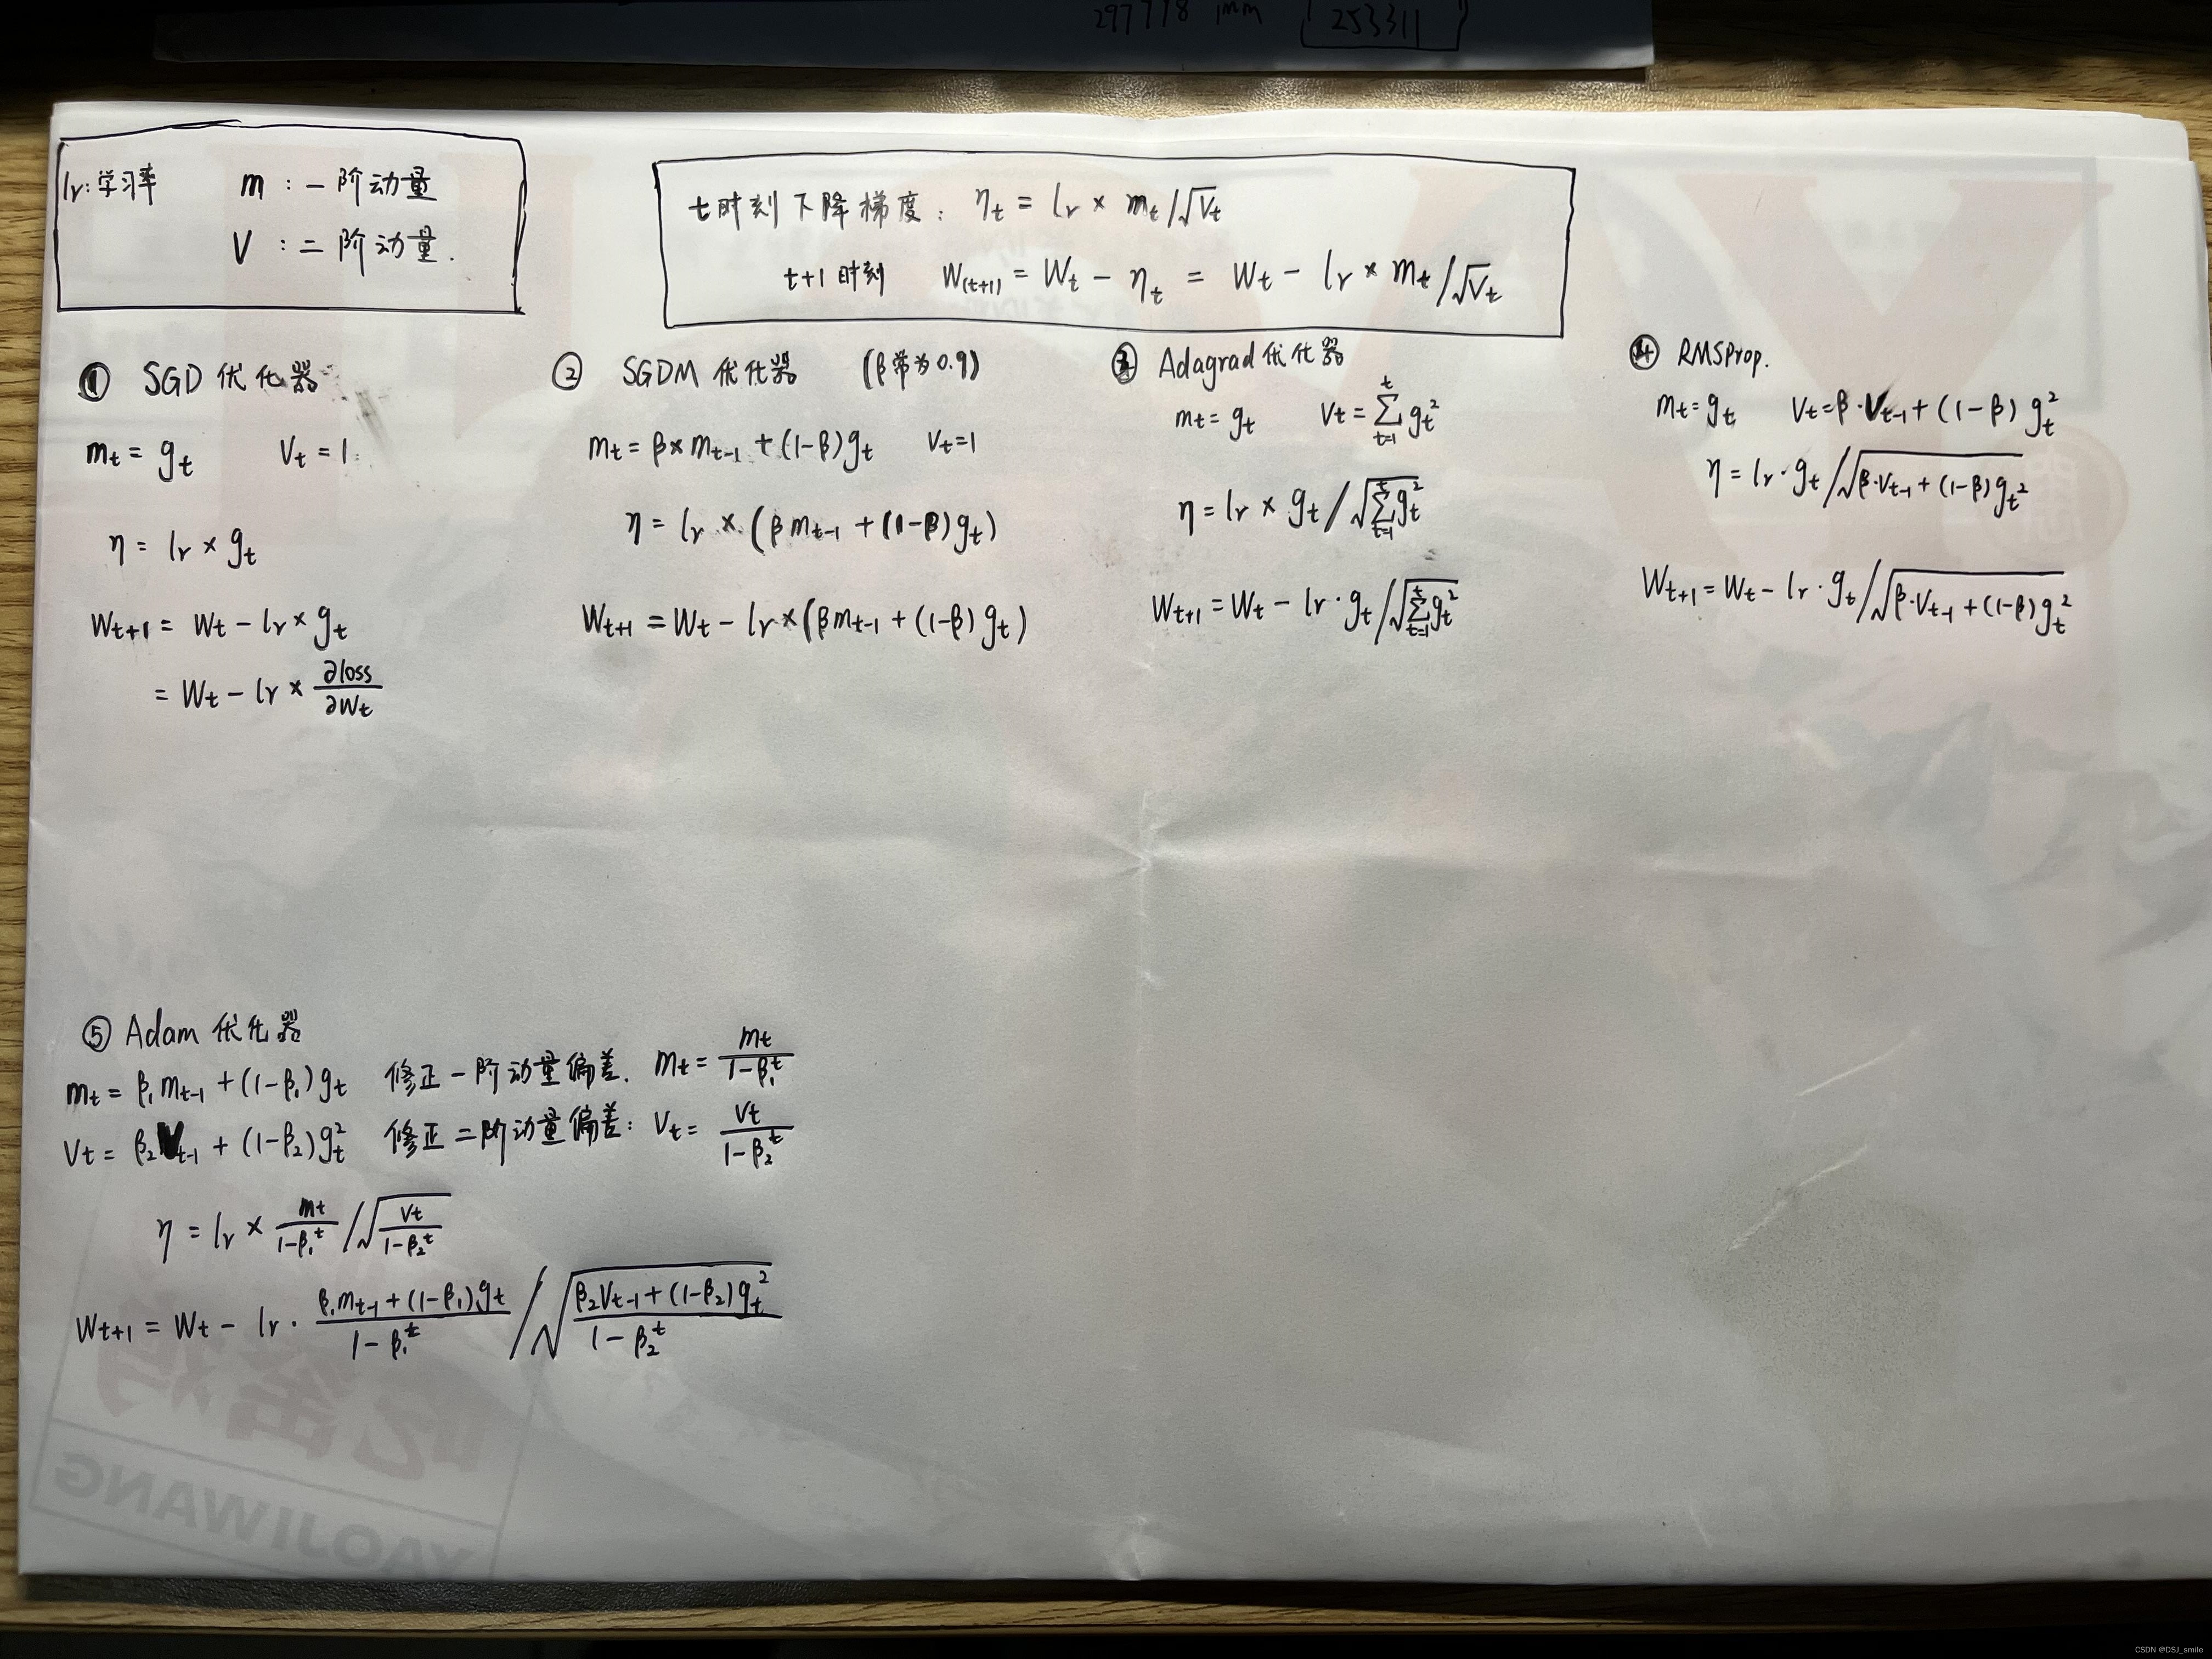 297778 1mm 253311
lr: 学习率 m : 一阶动量
V : 二阶动量.
t时刻下降梯度: ηt = lr × mt/√Vt
t+1时刻 W(t+1) = Wt - ηt = Wt - lr × mt/√Vt
① SGD 优化器
mt = gt Vt = 1
η = lr × gt
Wt+1 = Wt - lr × gt
= Wt - lr × ∂loss/∂Wt
② SGDM 优化器 (β常为0.9)
mt = β×mt-1 + (1-β)gt Vt=1
η = lr × (βmt-1 + (1-β)gt)
Wt+1 = Wt - lr×(βmt-1 + (1-β)gt)
③ Adagrad优化器
mt = gt Vt = ∑(t=1→t) gt²
η = lr × gt / √∑(t=1→t) gt²
Wt+1 = Wt - lr·gt/√∑(t=1→t) gt²
④ RMSProp.
mt = gt Vt = β·Vt-1 + (1-β) gt²
η = lr·gt/√β·Vt-1 + (1-β)gt²
Wt+1 = Wt - lr·gt/√β·Vt-1 + (1-β)gt²
⑤ Adam 优化器
mt = β₁mt-1 + (1-β₁)gt 修正一阶动量偏差. mt = mt/1-β₁ᵗ
Vt = β₂Vt-1 + (1-β₂)gt² 修正二阶动量偏差: Vt = Vt/1-β₂ᵗ
η = lr × mt/1-β₁ᵗ / √Vt/1-β₂ᵗ
Wt+1 = Wt - lr · β₁mt-1+(1-β₁)gt/1-β₁ᵗ / √β₂Vt-1+(1-β₂)gt²/1-β₂ᵗ
YAOJIWANG
CSDN @DSJ_smile